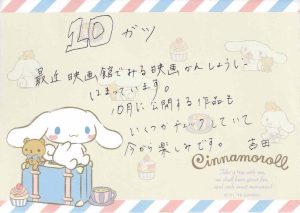 10 ガツ
最近 映画館でみる映画かんしょうに
はまっています。
10月に公開する作品も
いくつかチェックしていて
今から楽しみです。
吉田
Cinnamoroll
Take a trip with me,